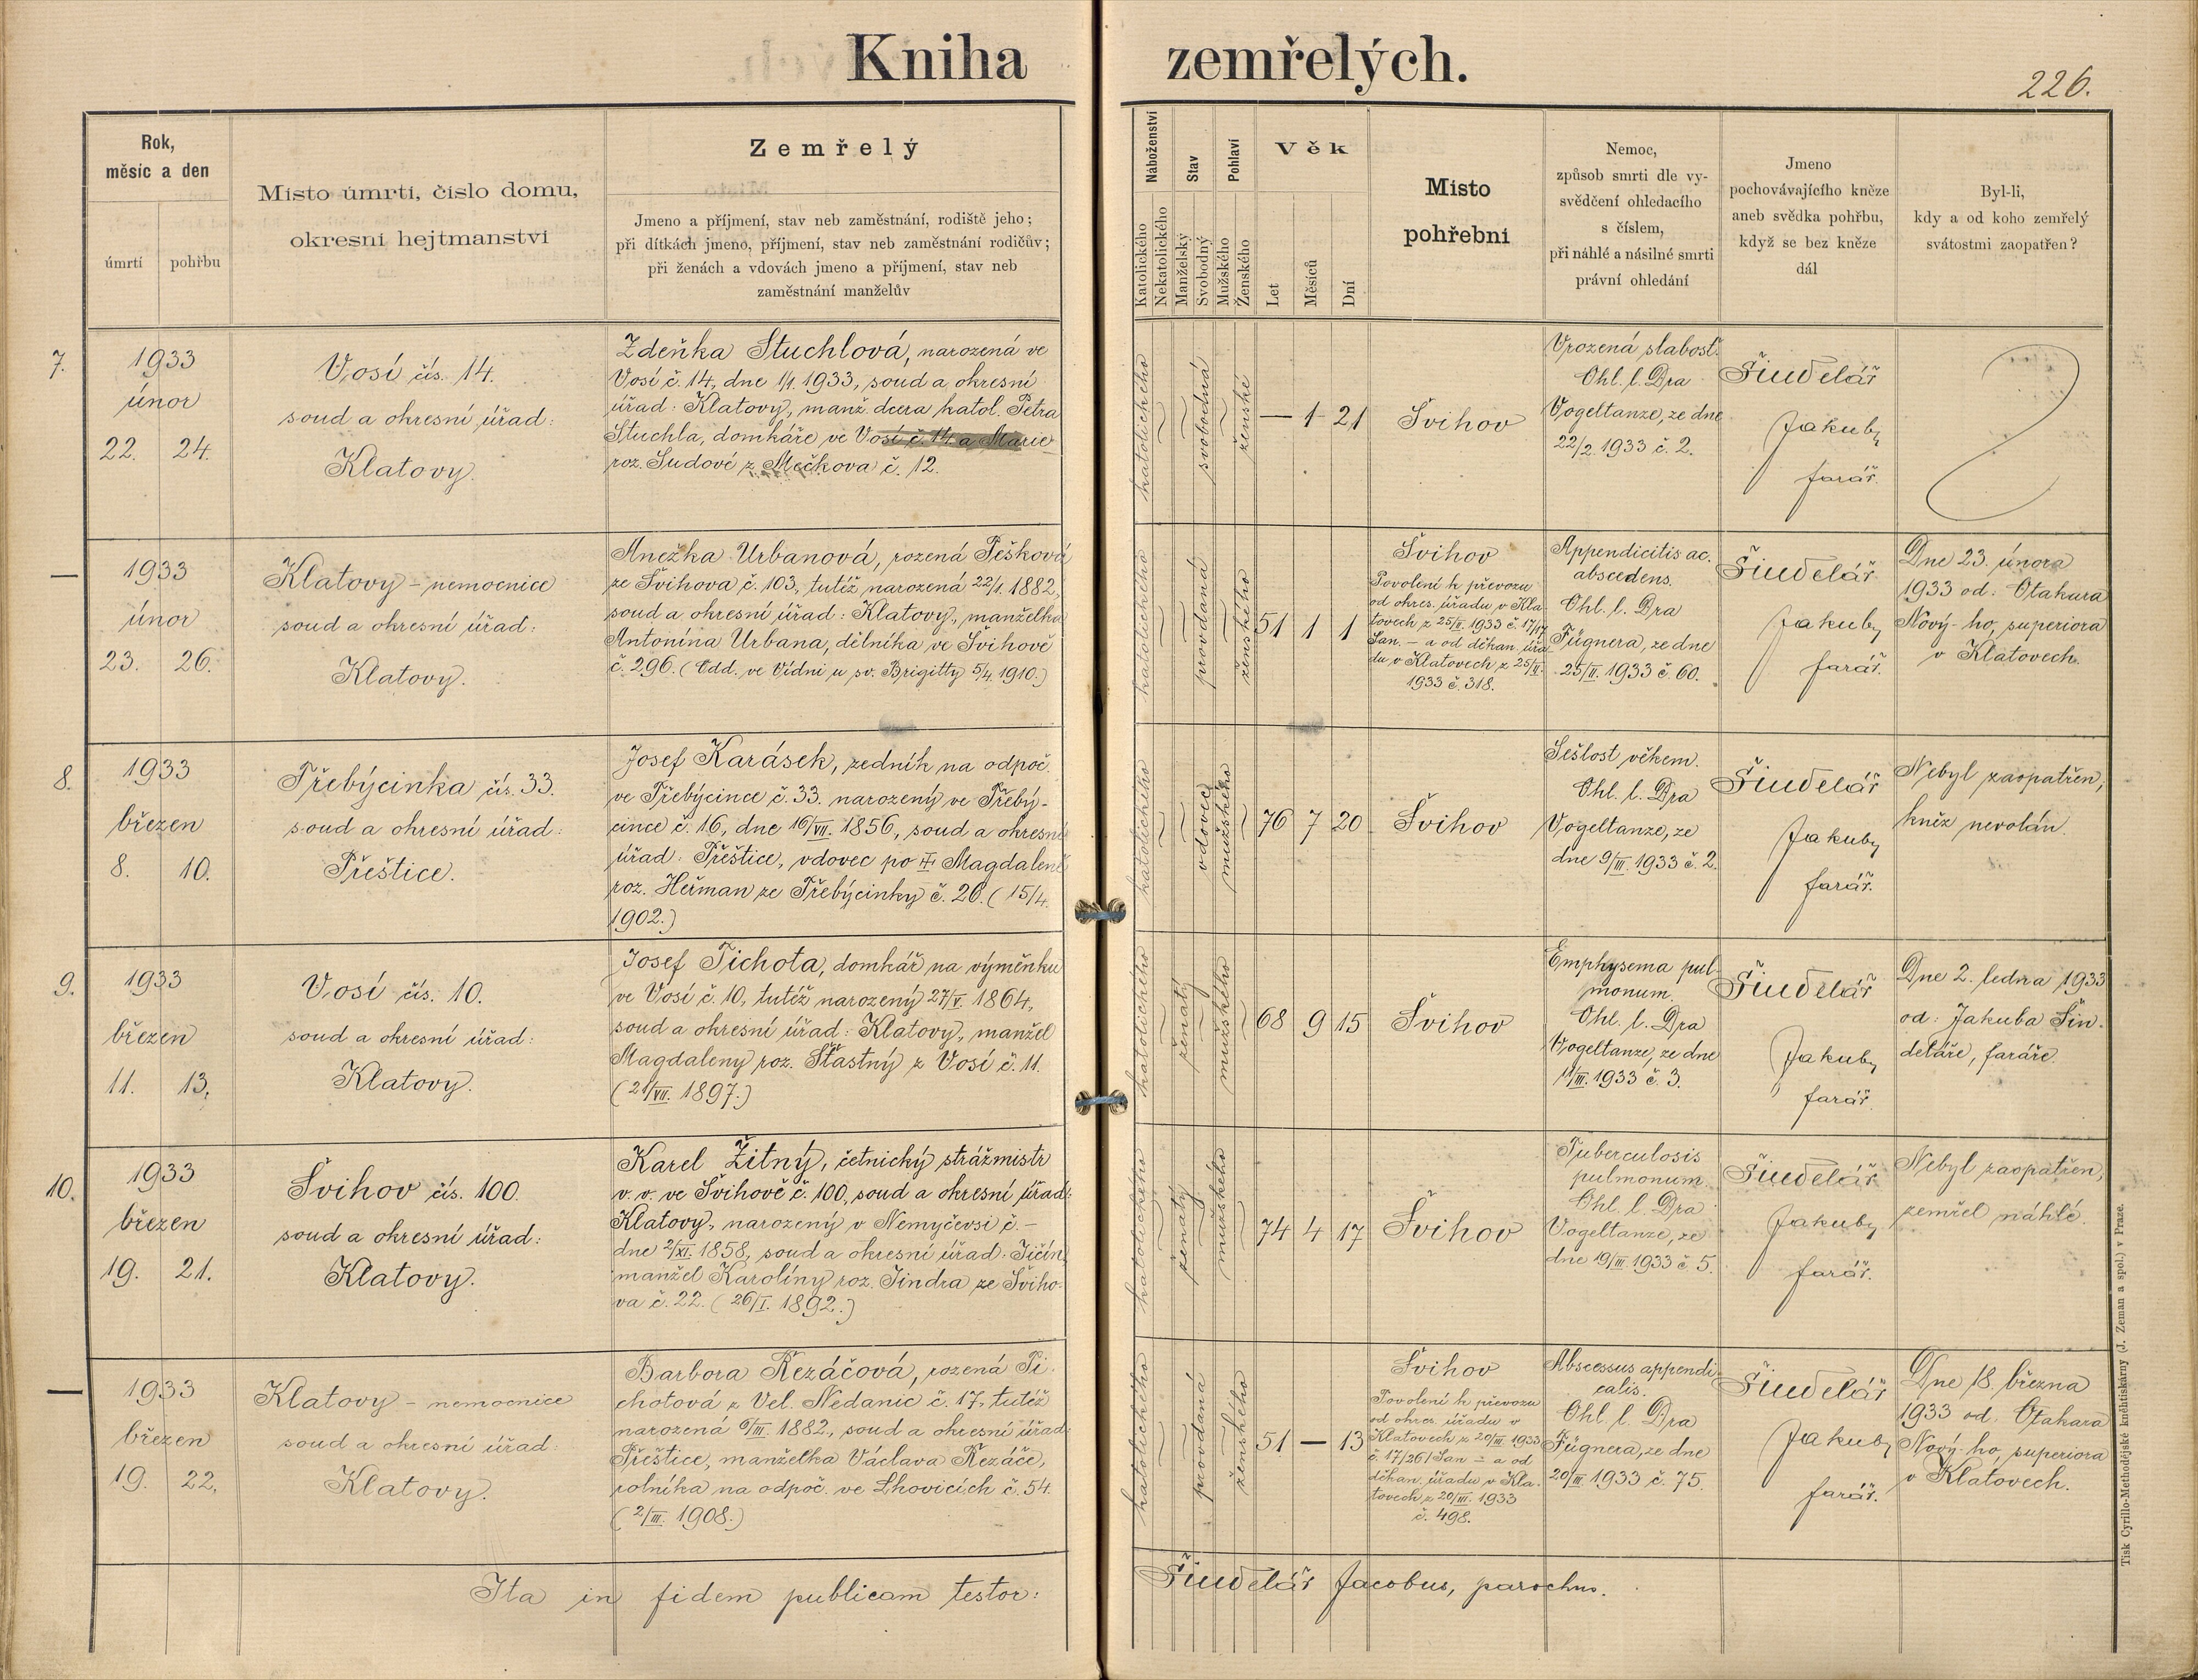 Kniha zemřelých.
226.
Rok,
měsíc a den
úmrtí
pohřbu
Místo úmrtí, číslo domu,
okresní hejtmanství
Zemřelý
Jmeno a příjmení, stav neb zaměstnání, rodiště jeho;
při dítkách jmeno, příjmení, stav neb zaměstnání rodičův;
při ženách a vdovách jmeno a příjmení, stav neb
zaměstnání manželův
Náboženství
Katolického
Nekatolického
Stav
Manželský
Svobodný
Pohlaví
Mužského
Ženského
Věk
Let
Měsíců
Dní
Místo
pohřební
Nemoc,
způsob smrti dle vy-
svědčení ohledacího
s číslem,
při náhlé a násilné smrti
právní ohledání
Jmeno
pochovávajícího kněze
aneb svědka pohřbu,
když se bez kněze
dál
Byl-li,
kdy a od koho zemřelý
svátostmi zaopatřen?
7.
1933
únor
22. 24.
Vosí čís. 14.
soud a okresní úřad:
Klatovy.
Zdeňka Stuchlová, narozená ve
Vosí č. 14, dne 1/1. 1933, soud a okresní
úřad: Klatovy, manž. dcera katol. Petra
Stuchla, domkáře ve Vosí č. 14 a Marie
roz. Sudové z Mečkova č. 12.
katolického
svobodná
ženské
— 1 21
Švihov
Vrozená slabosť.
Ohl. l. Dra
Vogeltanze, ze dne
22/2. 1933 č. 2.
Šindelář
Jakub,
farář.
—
1933
únor
23. 26.
Klatovy - nemocnice
soud a okresní úřad:
Klatovy.
Anežka Urbanová, rozená Pešková
ze Švihova č. 103, tutéž narozená 22/1. 1882,
soud a okresní úřad: Klatovy, manželka
Antonína Urbana, dělníka ve Švihově
č. 296. (Odd. ve Vídni u sv. Brigitty 5/4. 1910.)
katolického
provdaná
ženského
51 1 1
Švihov
Povolení k převozu
od okres. úřadu v Kla-
tovech z 25/II. 1933 č. 17/
San. - a od děkan. úřa-
du v Klatovech z 25/II.
1933 č. 318.
Appendicitis ac.
abscedens.
Ohl. l. Dra
Fügnera, ze dne
25/II. 1933 č. 60.
Šindelář
Jakub,
farář.
Dne 23. února
1933 od: Otakara
Nový-ho, superiora
v Klatovech.
8.
1933
březen
8. 10.
Třebýcinka čís. 33.
soud a okresní úřad:
Přeštice.
Josef Karásek, zedník na odpoč.
ve Třebýcince č. 33. narozený ve Třebý-
cince č. 16, dne 16/VII. 1856, soud a okresní
úřad: Přeštice, vdovec po ‡ Magdaleně
roz. Heřman ze Třebýcinky č. 26. (15/4.
1902.)
katolického
vdovec
mužského
76 7 20
Švihov
Sešlost věkem.
Ohl. l. Dra
Vogeltanze, ze
dne 9/III. 1933 č. 2.
Šindelář
Jakub,
farář.
Nebyl zaopatřen,
kněz nevolán.
9.
1933
březen
11. 13.
Vosí čís. 10.
soud a okresní úřad:
Klatovy.
Josef Tichota, domkář na výměnku
ve Vosí č. 10, tutéž narozený 27/V. 1864,
soud a okresní úřad: Klatovy, manžel
Magdaleny roz. Šťastný z Vosí č. 11.
(21/VII. 1897.)
katolického
ženatý
mužského
68 9 15
Švihov
Emphysema pul-
monum.
Ohl. l. Dra
Vogeltanze, ze dne
11/III. 1933 č. 3.
Šindelář
Jakub,
farář.
Dne 2. ledna 1933
od: Jakuba Šin-
deláře, faráře.
10.
1933
březen
19. 21.
Švihov čís. 100.
soud a okresní úřad:
Klatovy.
Karel Žitný, četnický strážmistr
v. v. ve Švihově č. 100, soud a okresní úřad:
Klatovy, narozený v Nemyčevsi č. -
dne 2/XI. 1858, soud a okresní úřad: Jičín,
manžel Karolíny roz. Jindra ze Šviho-
va č. 22. (26/I. 1892.)
katolického
ženatý
mužského
74 4 17
Švihov
Tuberculosis
pulmonum.
Ohl. l. Dra
Vogeltanze, ze
dne 19/III. 1933 č. 5.
Šindelář
Jakub,
farář.
Nebyl zaopatřen,
zemřel náhle.
—
1933
březen
19. 22.
Klatovy - nemocnice
soud a okresní úřad:
Klatovy.
Barbora Řezáčová, rozená Ti-
chotová z Vel. Nedanic č. 17, tutéž
narozená 6/III. 1882, soud a okresní úřad:
Přeštice, manželka Václava Řezáče,
rolníka na odpoč. ve Lhovicích č. 54.
(2/III. 1908.)
katolického
provdaná
ženského
51 — 13
Švihov
Povolení k převozu
od okres. úřadu v
Klatovech z 20/III. 1933
č. 17/261 San - a od
děkan. úřadu v Kla-
tovech z 20/III. 1933
č. 498.
Abscessus appendi-
calis.
Ohl. l. Dra
Fügnera, ze dne
20/III. 1933 č. 75.
Šindelář
Jakub,
farář.
Dne 18. března
1933 od. Otakara
Nový-ho, superiora
v Klatovech.
Ita in fidem publicam testor:
Šindelář Jacobus, parochus.
Tisk Cyrillo-Methodějské knihtiskárny (J. Zeman a spol.) v Praze.